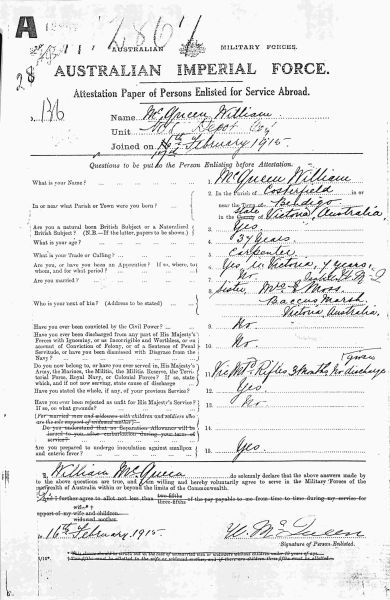 A
2867
AUSTRALIAN MILITARY FORCES.
28
AUSTRALIAN IMPERIAL FORCE.
Attestation Paper of Persons Enlisted for Service Abroad.
Name McQueen William
Unit Depot Coy
Joined on 16th February 1915
Questions to be put to the Person Enlisting before Attestation.
What is your Name? 1 McQueen William
In or near what Parish or Town were you born? 2 In the Parish of Costerfield
near the Town of Bendigo
in the County of State Victoria, Australia
Are you a natural born British Subject or a Naturalized
British Subject? (N.B.—If the latter, papers to be shown.) Yes
What is your age? 34 years
What is your Trade or Calling? Carpenter
Are you, or have you been an Apprentice? If so, where, to
whom, and for what period? Yes in Victoria, 7 years,
Are you married? No
Who is your next of kin? (Address to be stated) Sister, Mrs Moss
Baccus Marsh
Victoria, Australia.
Have you ever been convicted by the Civil Power? No
Have you ever been discharged from any part of His Majesty's
Forces with Ignominy, or as Incorrigible and Worthless, or on
account of Conviction of Felony, or of a Sentence of Penal
Servitude, or have you been dismissed with Disgrace from the
Navy? 10 No
Do you now belong to, or have you ever served in, His Majesty's
Army, the Marines, the Militia, the Militia Reserve, the Territorial
Force, Royal Navy, or Colonial Forces? If so, state
which, and if not now serving, state cause of discharge 11 Vic M. Rifles 3 Months No discharge
Have you stated the whole, if any, of your previous Service? 12 Yes
Have you ever been rejected as unfit for His Majesty's Service? If
so, on what grounds? 13 No
(For married men and widowers with children and soldiers who
are the sole support of widowed mother)—
Do you understand that no Separation Allowance will be
issued to you after embarkation during your term of
service?
Are you prepared to undergo inoculation against smallpox
and enteric fever? 15 Yes
I, William McQueen do solemnly declare that the above answers made
by me to the above questions are true, and I am willing and hereby voluntarily agree to serve in the Military Forces of the
Commonwealth of Australia within or beyond the limits of the Commonwealth.
And I further agree to allot not less than two-fifths
three-fifths of the pay payable to me from time to time during my service for
support of my wife
wife and children.
widowed mother.
16th February 1915.
W. McQueen
Signature of Person Enlisted.